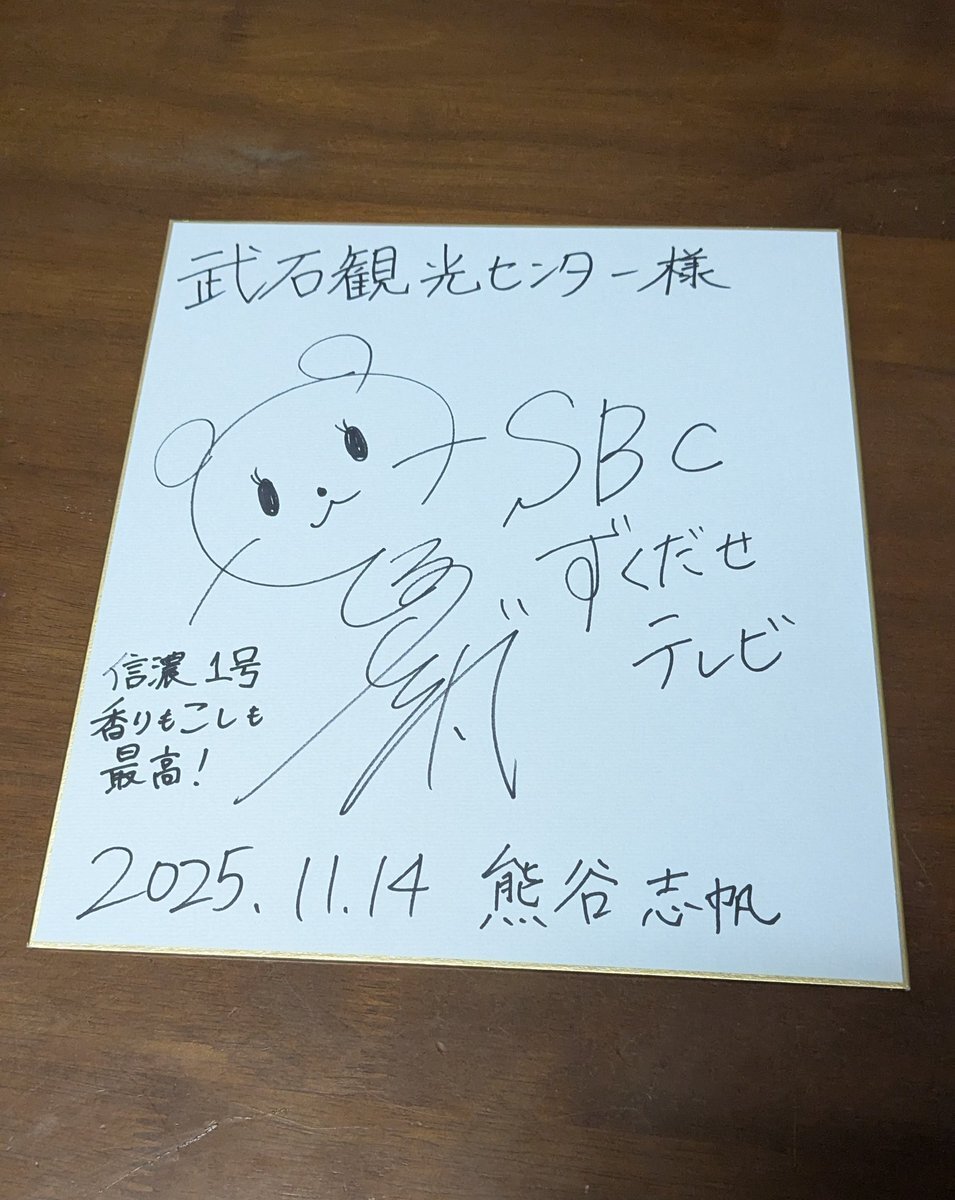 武石観光センター様
SBC
ずくだせ
テレビ
信濃1号
香りもこしも
最高!
2025.11.14 熊谷 志帆